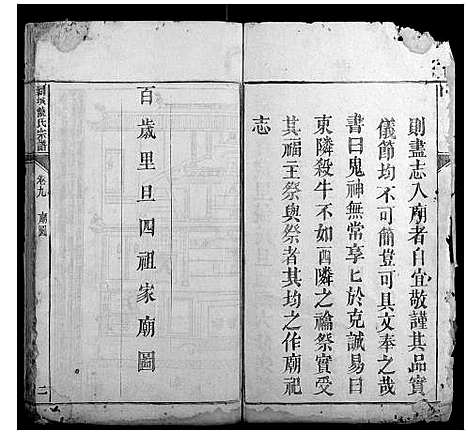 則盡志入廟者自宜敬謹其品實
儀節均不可簡豈可具文奉之哉
書曰鬼神無常享匕於克誠易曰
東隣殺牛不如西隣之禴祭實受
其福主祭與祭者其均之作廟祀
志
百歲里旦四祖家廟圖
氏宗譜
卷九
廟圖
二